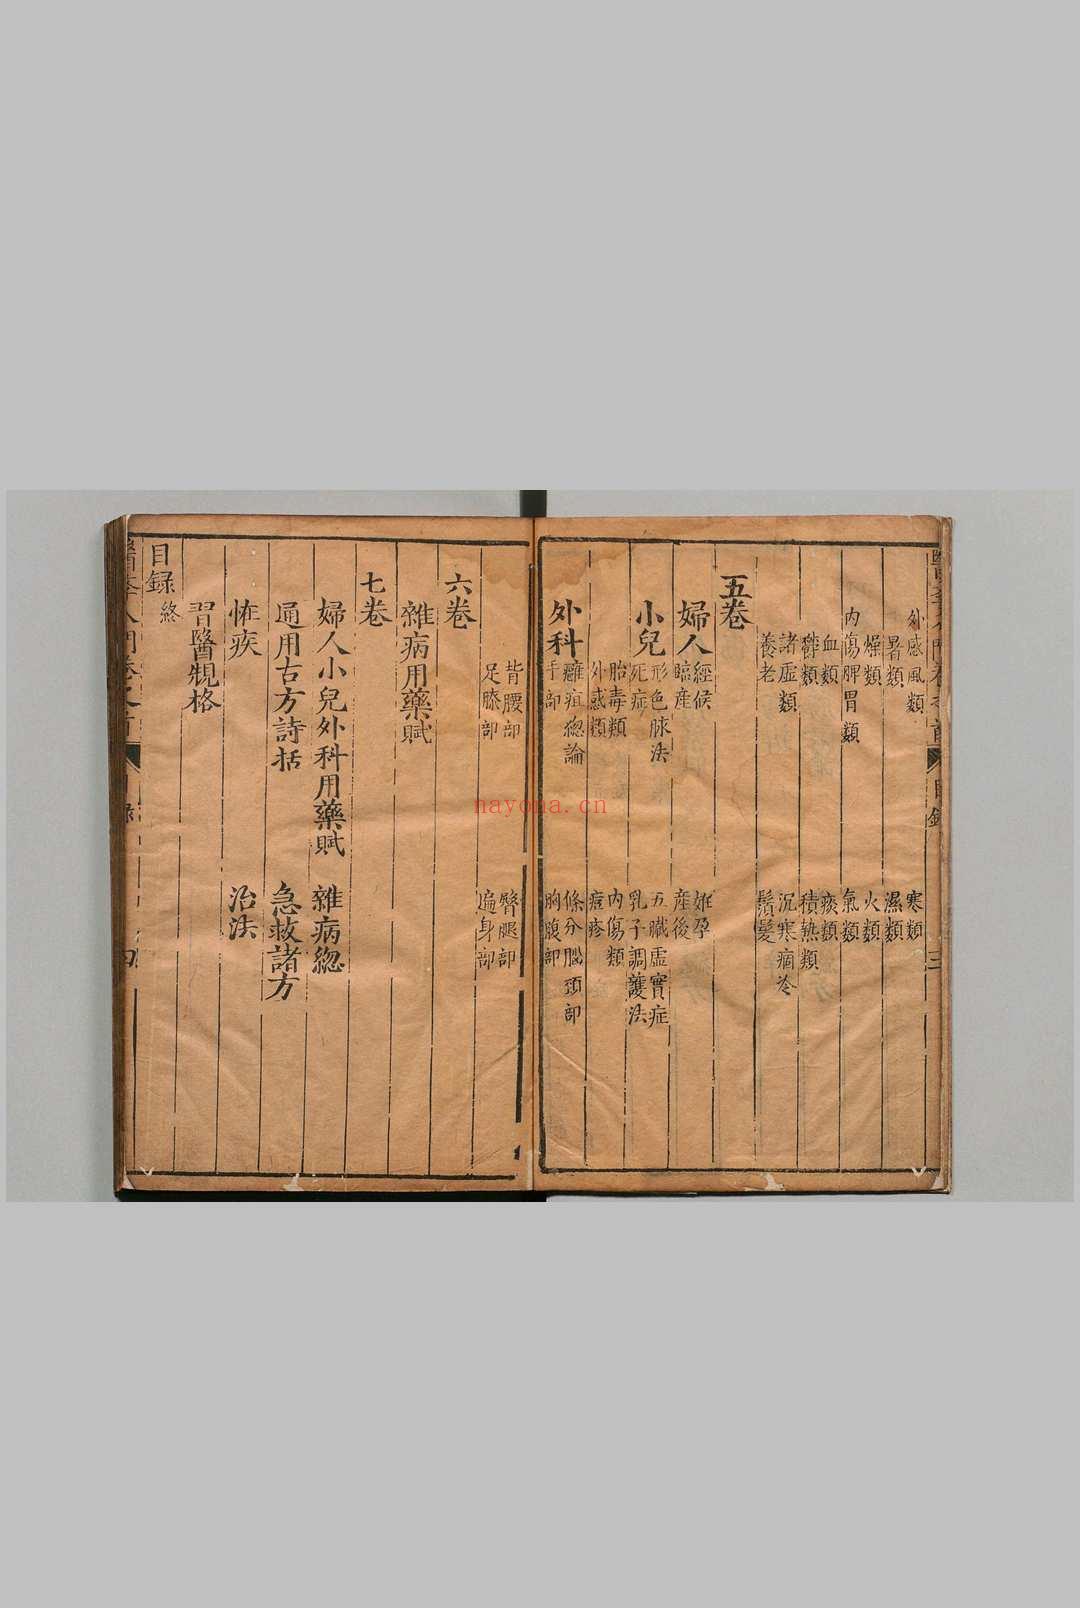 外感風類 寒類
暑類 濕類
燥類 火類
内傷脾胃類 氣類
血類 痰類
鬱類 積熱類
諸虚類 沉寒痼冷
養老 鬚髮
五巻
婦人 經候 姙孕
臨産 産後
小兒 形色脉法 五臟虚實症
死症 乳子調護法
胎毒類 内傷類
外感類 痘疹
外科 癰疽總論 條分腦頸部
手部 胸腹部
三
背腰部 臀腿部
足膝部 遍身部
六巻
雜病用藥賦
七巻
婦人小兒外科用藥賦 雜病緫
通用古方詩括 急救諸方
怪疾 治法
習醫規格
目録終
nayona.cn